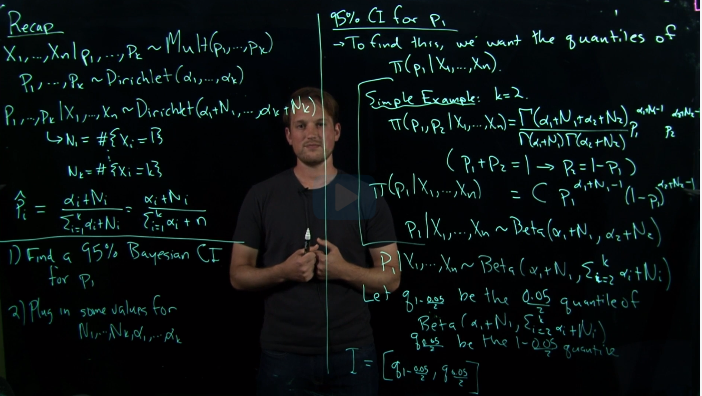 Recap
X₁,...,Xₙ|p₁,...,pₖ ~ Mult(p₁,...,pₖ)
p₁,...,pₖ ~ Dirichlet(α₁,...,αₖ)
p₁,...,pₖ|X₁,...,Xₙ ~ Dirichlet(α₁+N₁,...,αₖ+Nₖ)
↳ N₁ = #{Xᵢ = 1}
⋮
Nₖ = #{Xᵢ = k}
p̂ᵢ = (αᵢ+Nᵢ)/(Σᵢ₌₁ᵏ αᵢ+Nᵢ) = (αᵢ+Nᵢ)/(Σᵢ₌₁ᵏ αᵢ + n)
1) Find a 95% Bayesian CI
for p₁
2) Plug in some values for
N₁,...,Nₖ,α₁,...,αₖ
95% CI for p₁
→ To find this, we want the quantiles of
π(p₁|X₁,...,Xₙ).
Simple Example: k=2.
π(p₁,p₂|X₁,...,Xₙ) = Γ(α₁+N₁+α₂+N₂)/(Γ(α₁+N₁)Γ(α₂+N₂)) p₁^(α₁+N₁-1) p₂^(α₂+N₂-1)
(p₁+p₂=1 → p₂=1-p₁)
π(p₁|X₁,...,Xₙ) = C p₁^(α₁+N₁-1) (1-p₁)^(α₂+N₂-1)
p₁|X₁,...,Xₙ ~ Beta(α₁+N₁, α₂+N₂)
p₁|X₁,...,Xₙ ~ Beta(α₁+N₁, Σᵢ₌₂ᵏ αᵢ+Nᵢ)
Let q_(1-0.05/2) be the 0.05/2 quantile of
Beta(α₁+N₁, Σᵢ₌₂ᵏ αᵢ+Nᵢ)
q_(0.05/2) be the 1-0.05/2 quantile
I = [q_(1-0.05/2), q_(0.05/2)]